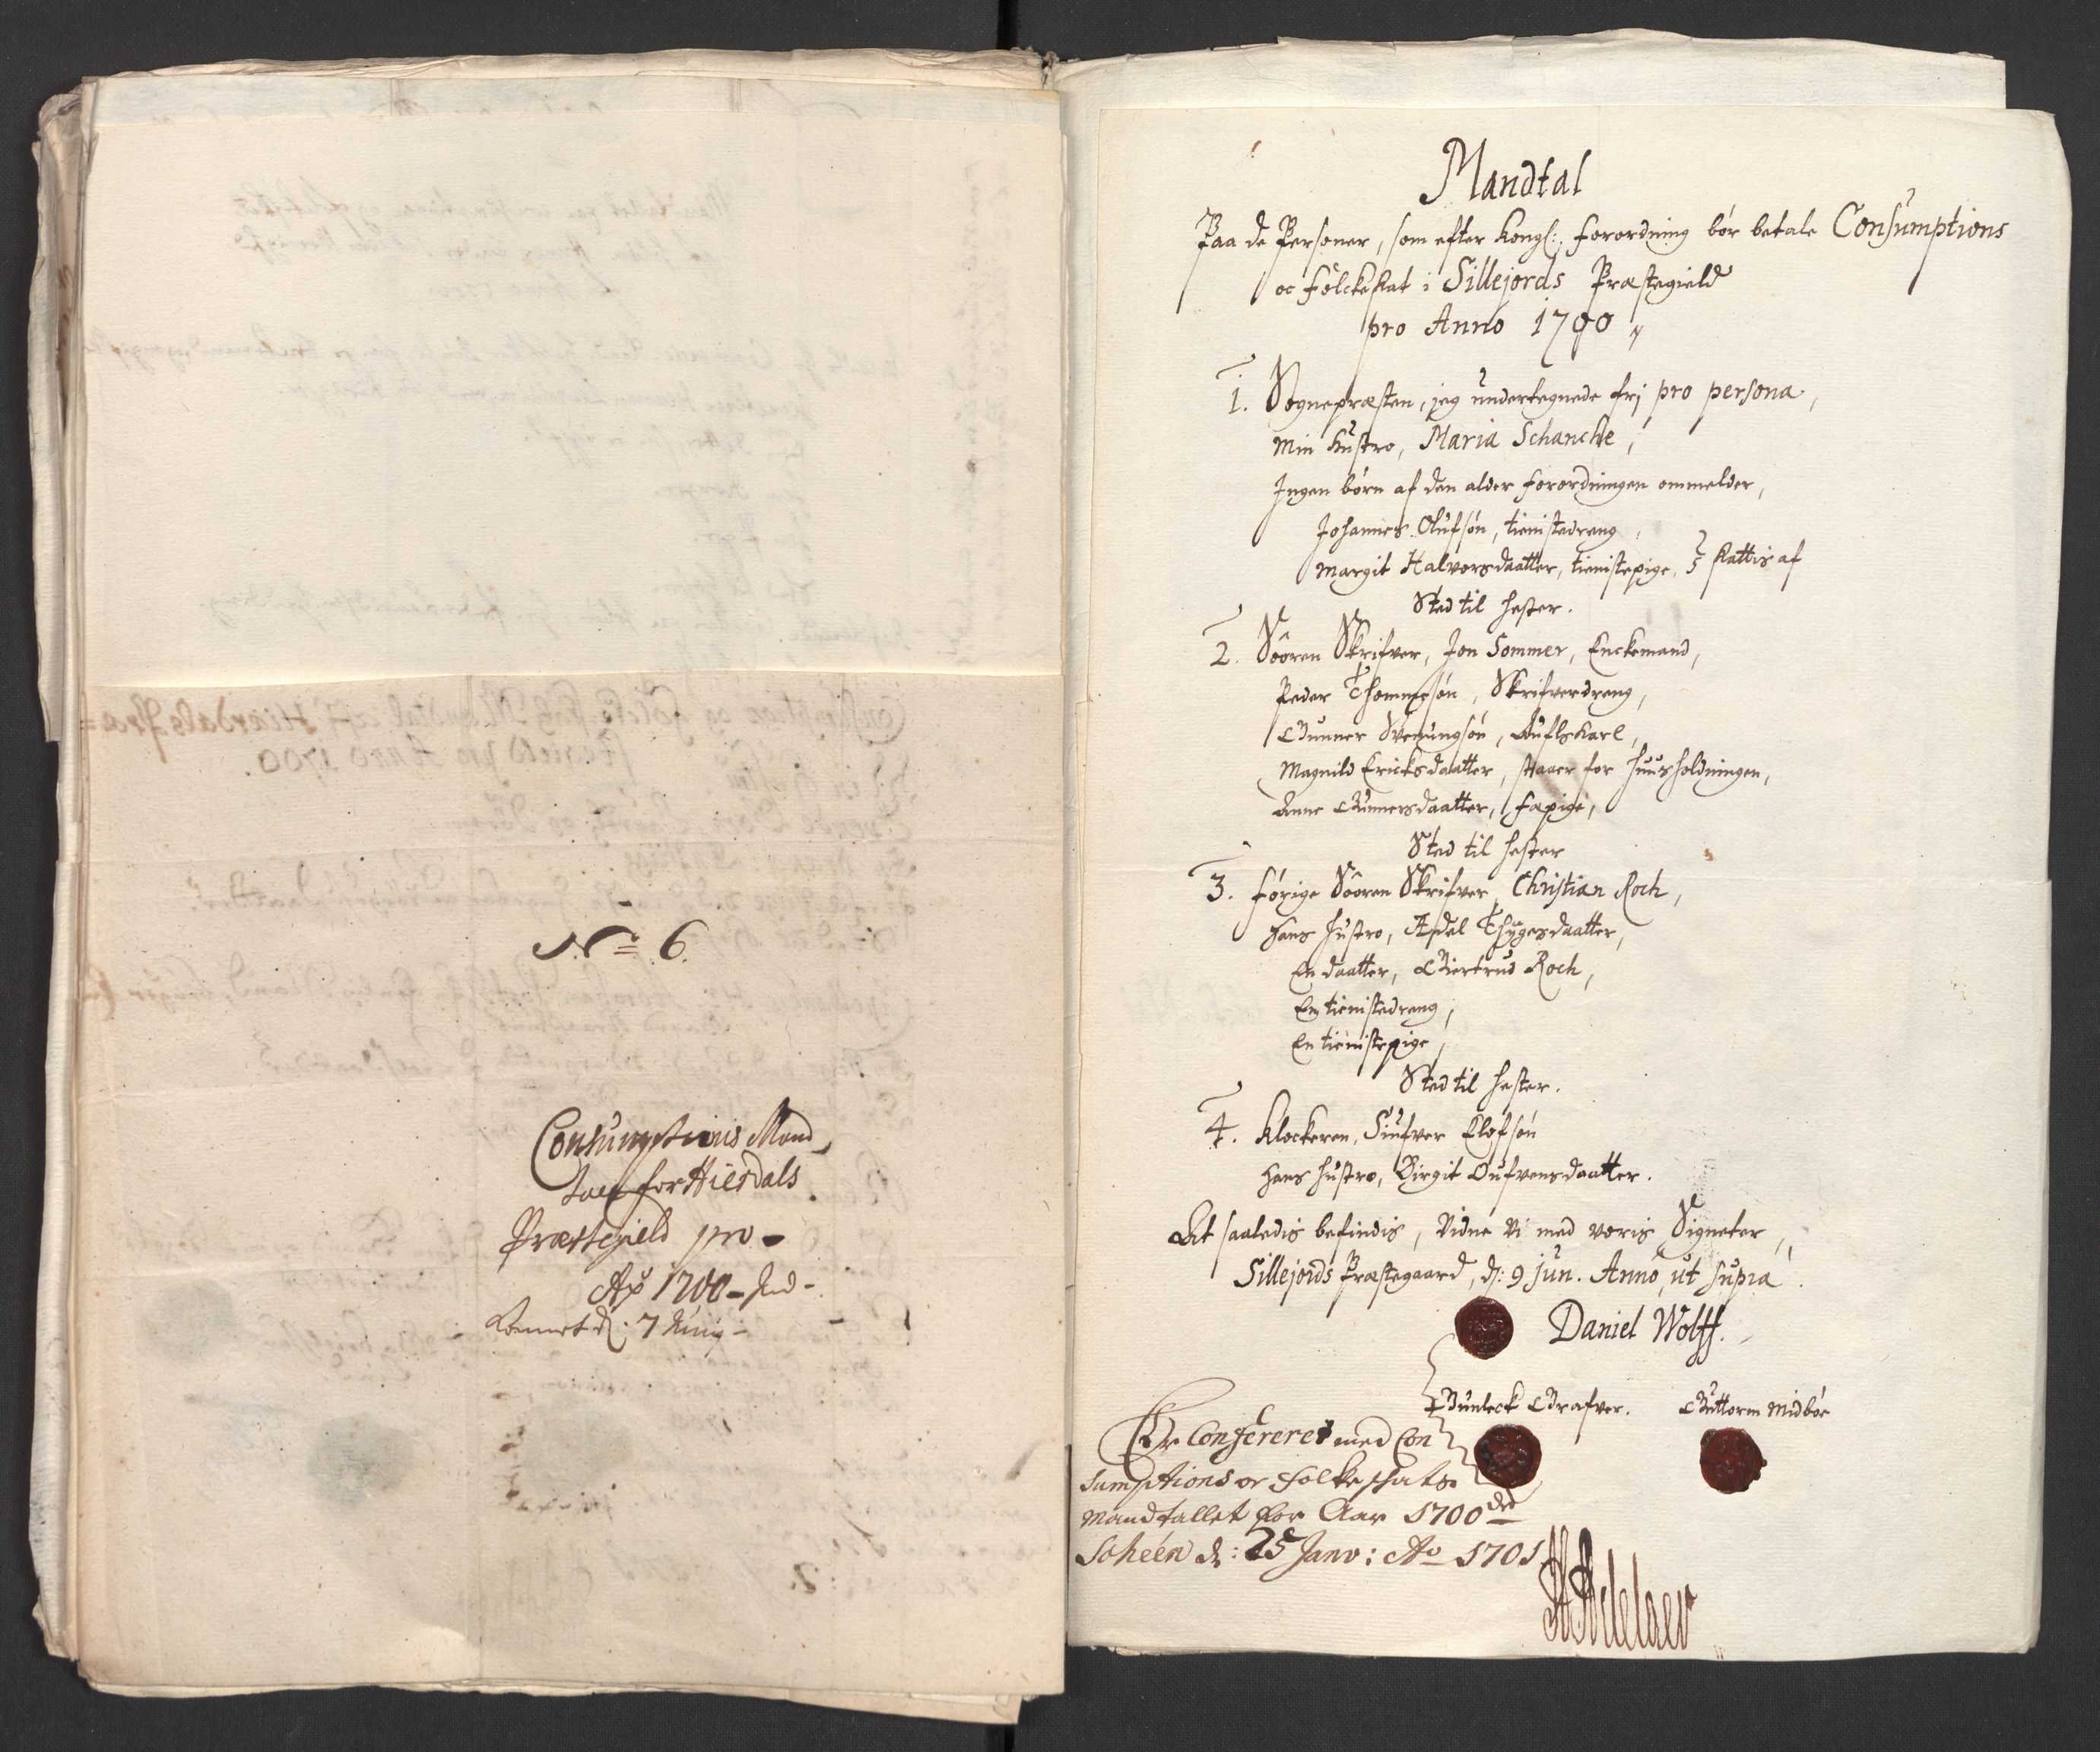 No 6.
Consumptions Mand
tall for Hierdals
Præstegield pro
Ao 1700 - Ind-
kommet d: 7 Junij -
Mandtal
Paa de Personer, som efter Kongl: forordning bør betale Consumptions
oc Folckeskat i Sillejords Præstegield
pro Anno 1700
1. Sognepræsten, jeg undertegnede frj pro persona,
Min Hustro, Maria Schanche,
Ingen børn af den alder forordningen ommelder,
Johannes Olufsøn, tienistedreng
Margit Halvorsdaatter, tienistepige, skattis af
Sted til hester.
2. Sooren Skrifver, Jon Sommer, Enckemand,
Peder Thommesøn, Skrifverdreng,
Gunner Svenungsøn, Auflskarl,
Magnild Ericksdaatter, staaer for huusholdningen,
Anne Gunnersdaatter, fæpige,
Sted til hester
3. forige Sooren Skrifver, Christian Roch,
Hans hustro, Adel Thygesdaatter,
En daatter, Giertrud Roch,
En tienistedreng,
En tienistepige,
Sted til hester.
4. Klockeren, Siufver Elofsøn
Hans hustro, Birgit Oufvensdaatter.
At saaledis befindis, Vidne Vi med voris Signeter,
Sillejords Præstegaard, d: 9 Jun. Anno, ut supra.
Daniel Wolff.
Gunleck Grafver. Guttorm Midbøe
Er Confereret med Con
sumptions oc Folkeschats
Mandtallet for Aar 1700
Scheén d: 25 Janv: Ao 1701